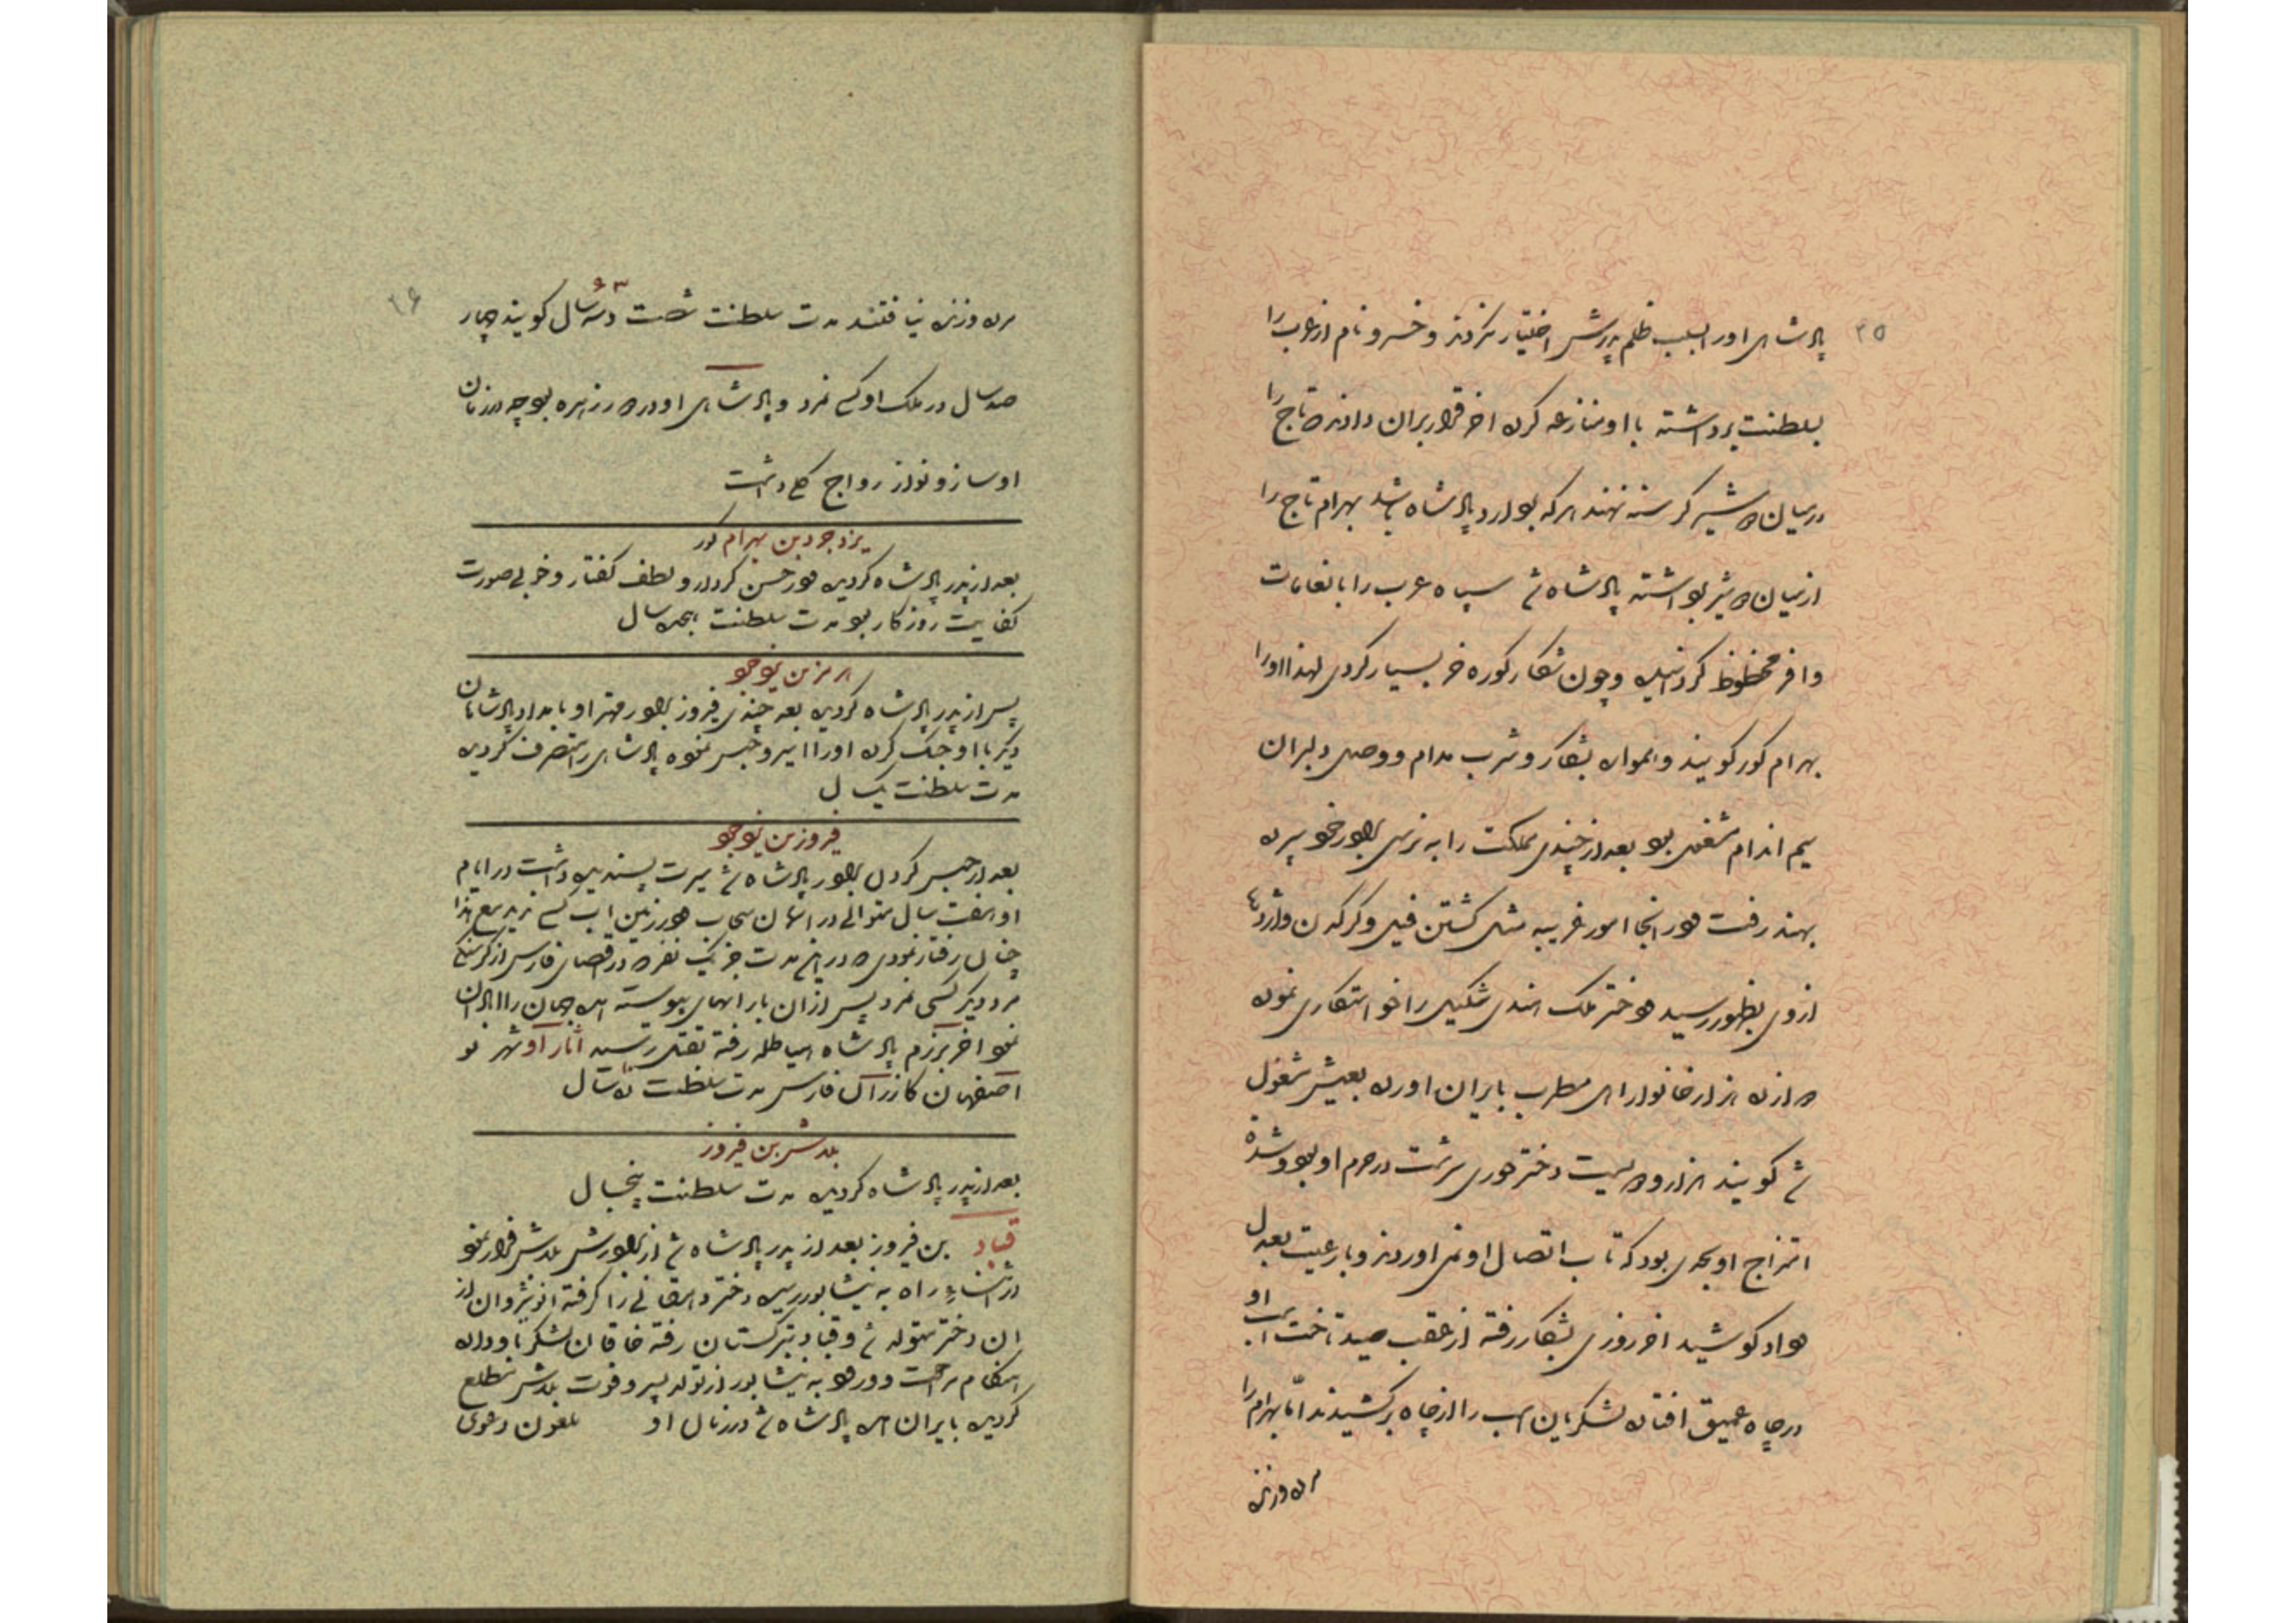 ۳۵
پادشاهی او را بسبب ظلم پدرش اختیار نکردند و خسرو نام از عرب را
بسلطنت برداشته با او منازعه کرده اخر قرار بران دادند که تاج را
درمیان دو شیر گرسنه نهند هر که بردارد پادشاه باشد بهرام تاج را
از میان دو شیر برداشته پادشاه شد سپاه عرب را بانعامات
وافر محظوظ گردانیده و چون شکار کوره خر بسیار کردی لهذا او را
بهرام کور کویند و همواره بشکار و شرب مدام و وصل دلبران
سیم اندام مشغول بود بعد از چندی مملکت را به نرسی برادر خود سپرده
بهند رفت در انجا امور غریبه مثل کشتن فیل و کرکدن و اژدها
از وی بظهور رسید دختر ملک هندی شنکل را خواستکاری نموده
دوازده هزار خانوار اهل مطرب بایران اورده بعیش مشغول
شد کویند هزار و دویست دختر حوری سرشت در حرم او بود و شدة
امتزاج او بحدی بود که تاب اتصال او نمی اوردند و با رعیت بعدل
و داد کوشید اخر روزی بشکار رفته از عقب صید تاخت اسب او
در چاه عمیق افتاده لشکریان اسب را از چاه برکشیدند اما بهرام را
مرده و زنده
۳۶
مرده و زنده نیافتند مدت سلطنت شصت و سه سال کویند چهار
۶۳
صد سال در ملک او کسی نمرد و پادشاهی او در دور زهره بود چه در زمان
او ساز و نواز رواج کلی داشت
یزدجرد بن بهرام کور
بعد از پدر پادشاه کردیده در حسن کردار و لطف کفتار و خوبی صورت
کفایت روزکار بود مدت سلطنت هجده سال
هرمز بن یزدجرد
پس از پدر پادشاه کردیده بعد چندی فیروز برادر مهتر او بامداد پادشاهان
دیکر با او جنک کرده او را اسیر و حبس نموده پادشاهی را متصرف کردیده
مدت سلطنت یکسال
فیروز بن یزدجرد
بعد از حبس کردن برادر پادشاه شد سیرت پسندیده داشت در ایام
او هفت سال متوالی در اسمان سحاب و در زمین اب کسی ندید مع هذا
چنان رفتار نمودی که در این مدت جز یک نفر که در اقصای فارس از کرسنکی
مرد دیکر کسی نمرد پس از ان بارانهای پیوسته امده جهان را ابادان
نمود اخر برزم پادشاه هیاطله رفته بقتل رسید اثار او شهر نو
اصفهان کازران فارس مدت سلطنت ده سال
بلاش بن فیروز
بعد از پدر پادشاه کردیده مدت سلطنت پنجسال
قباد بن فیروز بعد از پدر پادشاه شد از برادرش بلاش فرار نمود
در اثناء راه به نیشابور رسیده دختر دهقانی را کرفته انوشیروان از
ان دختر متولد شد و قباد بترکستان رفته خاقان لشکر باو داده
هنکام مراجعت و ورود به نیشابور از تولد پسر و فوت بلاش مطلع
کردیده بایران امده پادشاه شد در زمان او ملعون دعوی